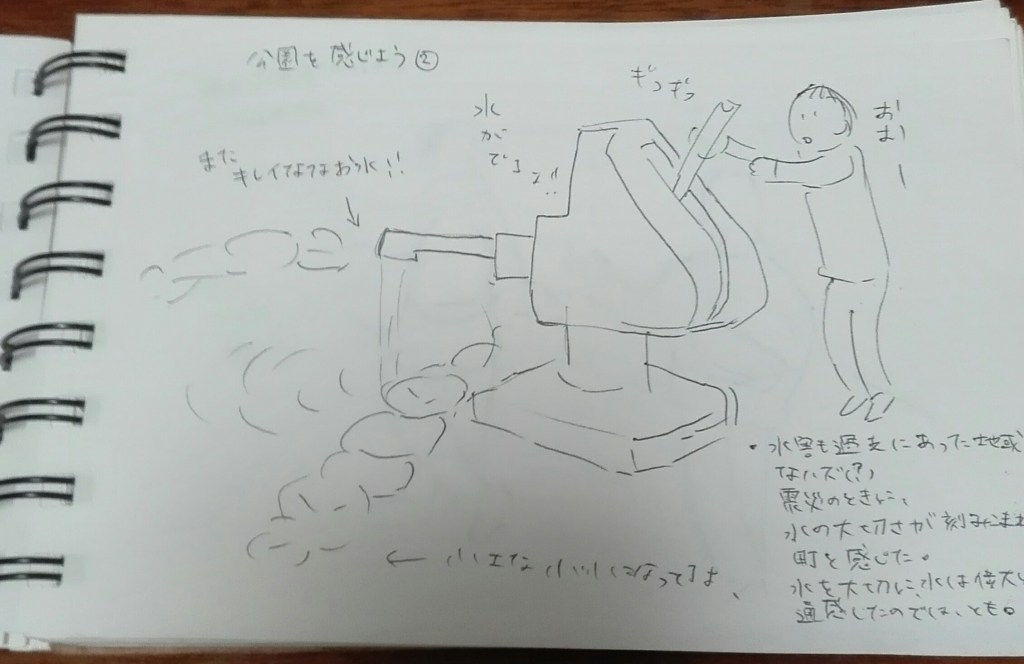 公園を感じよう②
ギコギコ
おおー
水がでるぞ!!
また
キレイなお水!!
・水害も過去にあった地域
なハズ(?)
震災のときに、
水の大切さが刻みこまれ
町を感じた。
水を大切に、水は偉大
痛感したのでは、とも。
← 小川になってるよ、